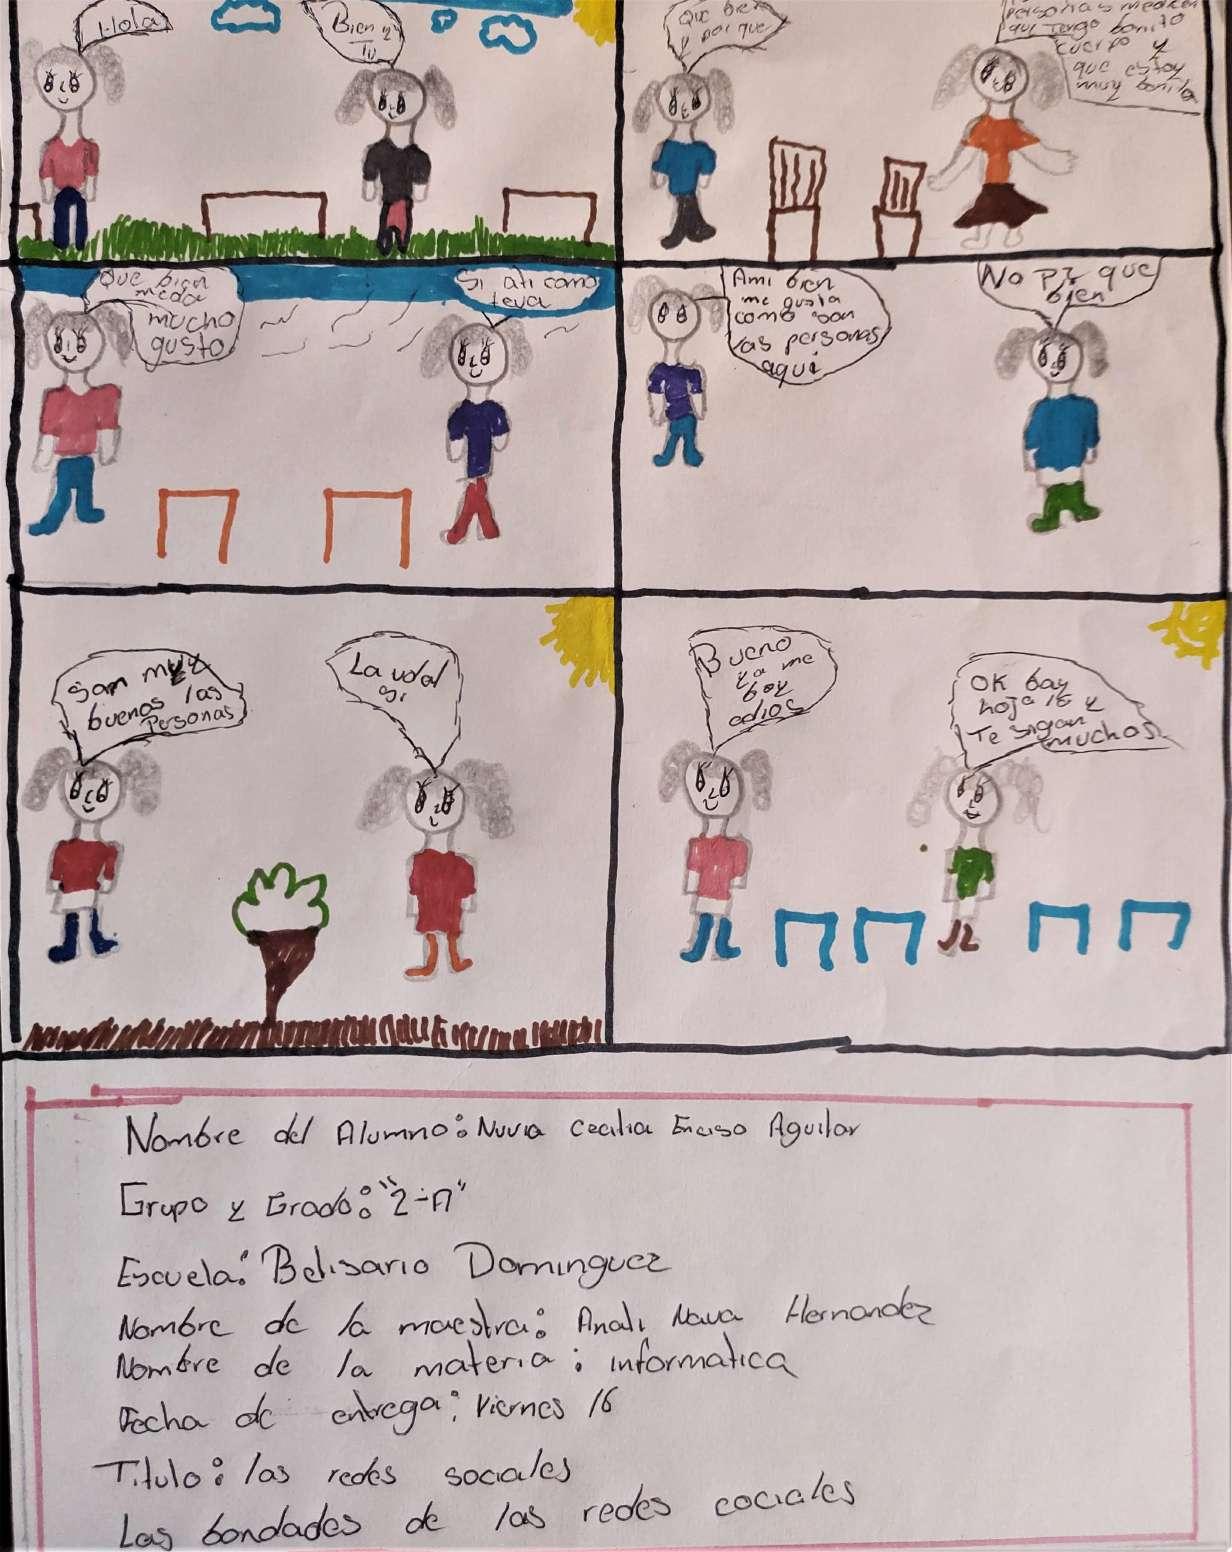 Hola
Bien y
Tu
Que bien
y por que
personas me dicen
que tengo bonito
cuerpo y
que estoy
muy bonita
Que bien
meda
mucho
gusto
Si ati como
teva
Ami bien
me gusta
como son
las personas
aqui
No pz que
bien
Son muy
buenas las
Personas
La
si
Bueno
ya me
boy
adios
OK bay
hoja la y
Te sigan
muchos
Nombre del Alumno: Nuvia Cecilia Enciso Aguilar
Grupo y Grado: "2-A"
Escuela: Belisario Dominguez
Nombre de la maestra: Anali Nava Hernandez
Nombre de la materia: informatica
Fecha de entrega: Viernes 16
Titulo: las redes sociales
Las bondades de las redes cociales